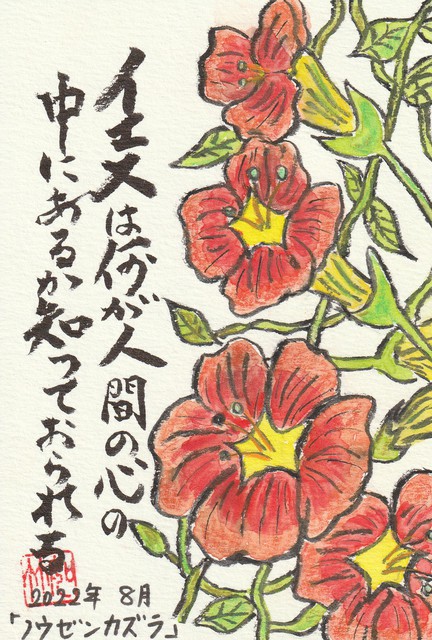 イエスは何が人間の心の
中にあるか知っておられる
2022年 8月
「ノウゼンカズラ」